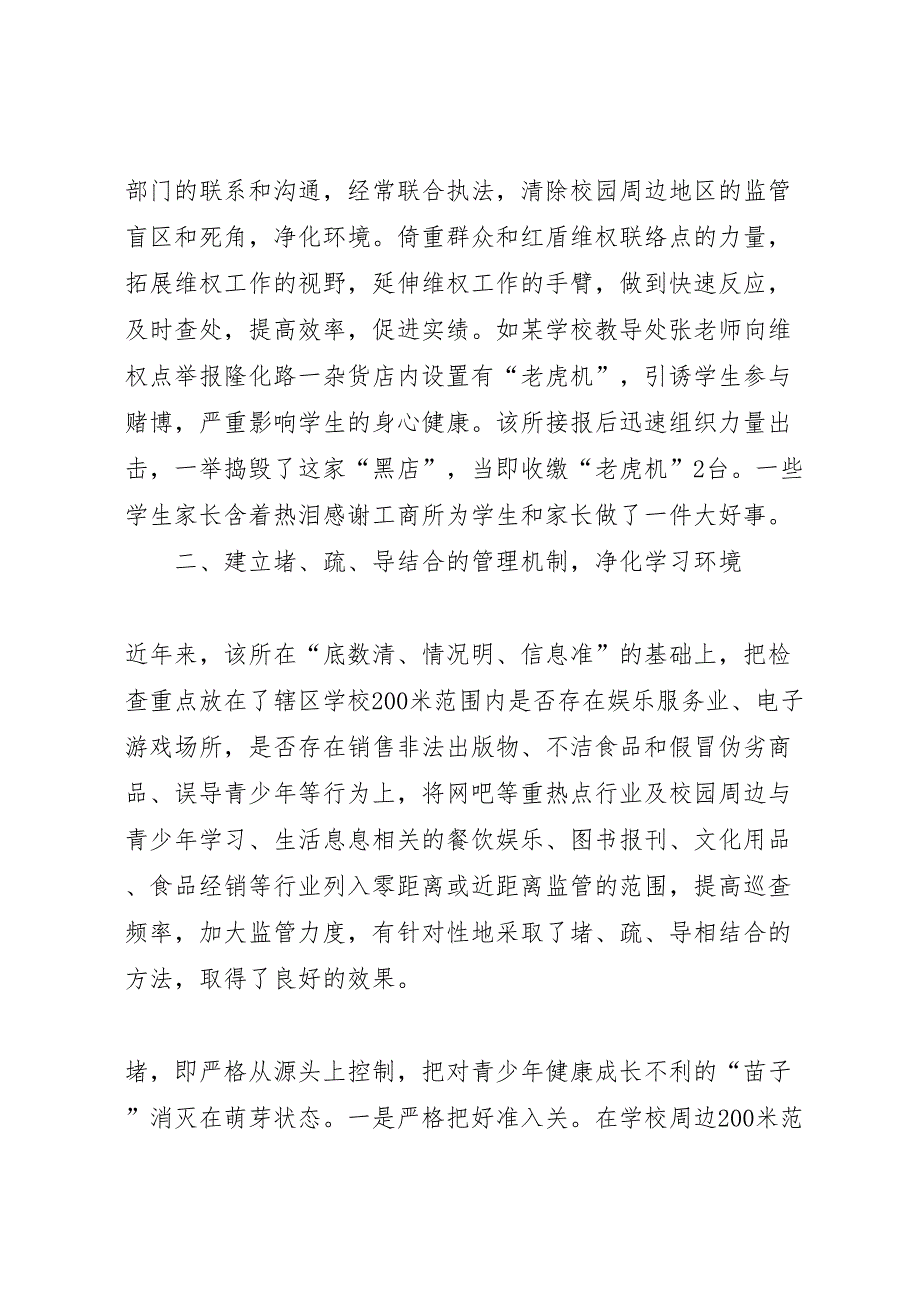 部门的联系和沟通，经常联合执法，清除校园周边地区的监管
盲区和死角，净化环境。倚重群众和红盾维权联络点的力量，
拓展维权工作的视野，延伸维权工作的手臂，做到快速反应，
及时查处，提高效率，促进实绩。如某学校教导处张老师向维
权点举报隆化路一杂货店内设置有“老虎机”，引诱学生参与
赌博，严重影响学生的身心健康。该所接报后迅速组织力量出
击，一举捣毁了这家“黑店”，当即收缴“老虎机”2台。一些
学生家长含着热泪感谢工商所为学生和家长做了一件大好事。
二、建立堵、疏、导结合的管理机制，净化学习环境
近年来，该所在“底数清、情况明、信息准”的基础上，把检
查重点放在了辖区学校200米范围内是否存在娱乐服务业、电子
游戏场所，是否存在销售非法出版物、不洁食品和假冒伪劣商
品、误导青少年等行为上，将网吧等重热点行业及校园周边与
青少年学习、生活息息相关的餐饮娱乐、图书报刊、文化用品
、食品经销等行业列入零距离或近距离监管的范围，提高巡查
频率，加大监管力度，有针对性地采取了堵、疏、导相结合的
方法，取得了良好的效果。
堵，即严格从源头上控制，把对青少年健康成长不利的“苗子
”消灭在萌芽状态。一是严格把好准入关。在学校周边200米范